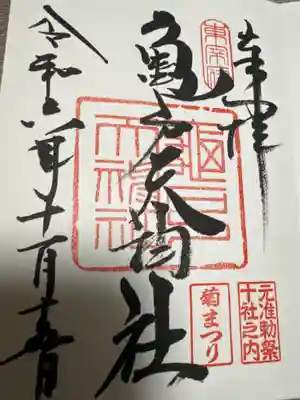 奉拝
東宰府
亀戸天神社
龜戸天神社
元准勅祭
十社之内
菊まつり
令和六年十一月十五日